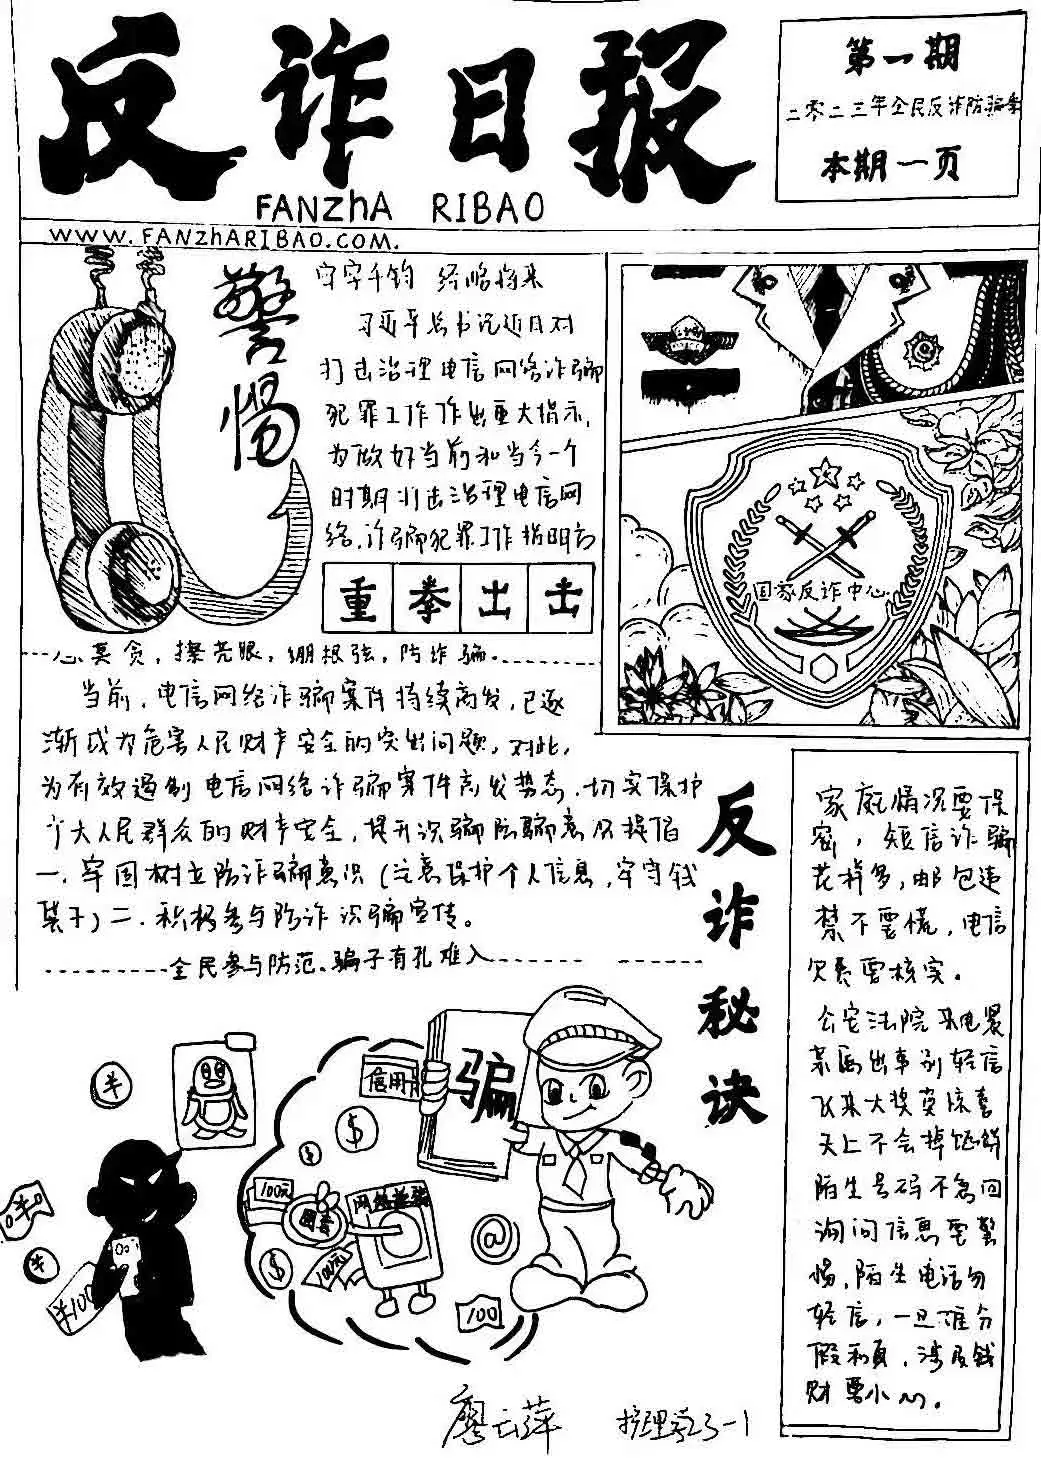 反诈日报
FANZhA RIBAO
第一期
二零二三年全民反诈防骗季
本期一页
WWW.FANZhARIBAO.COM.
警惕
字字千钧 经略将来
习近平总书记近日对
打击治理电信网络诈骗
犯罪工作作出重大指示,
为做好当前和当今一个
时期打击治理电信网
络,诈骗犯罪工作指明方
重拳出击
莫贪,擦亮眼,绷根弦,防诈骗。
当前,电信网络诈骗案件持续高发,已逐
渐成为危害人民财产安全的突出问题,对此,
为有效遏制电信网络诈骗案件高发势态,切实保护
广大人民群众的财产安全,提升识骗防骗意识提倡
一.牢固树立防诈骗意识(注意保护个人信息,牢守钱
袋子)二.积极参与防诈识骗宣传。
全民参与防范.骗子有孔难入
国家反诈中心
反诈秘诀
家庭情况要保
密,短信诈骗
花样多,邮包违
禁不要慌,电信
欠费要核实。
公安法院来电紧
某属出事别轻信
飞来大奖莫惊喜
天上不会掉馅饼
陌生号码不急回
询问信息要警
惕,陌生电话勿
轻信,一旦难分
假和真,涉及钱
财要小心。
骗
信用
$
100元
100元
$
@
100
¥
¥
¥100
廖云萍 护理学23-1